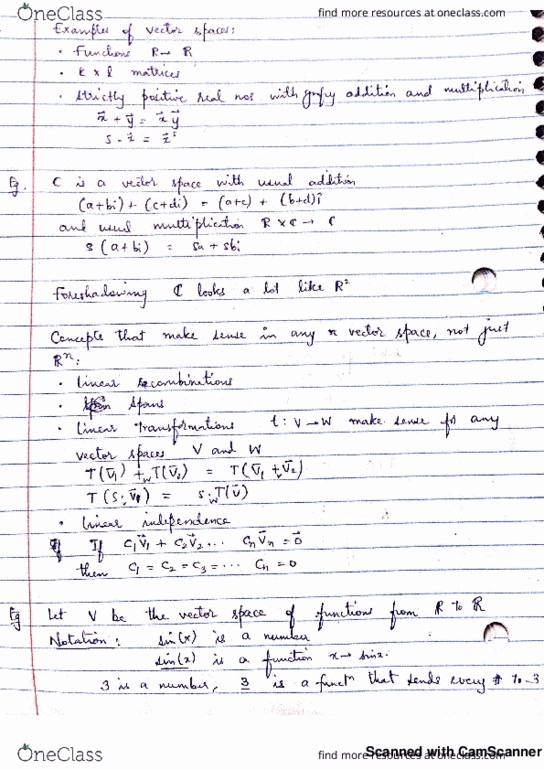 OneClass find more resources at oneclass.com
Examples of vector spaces:
• Functions R → R
• k x l matrices
• strictly positive real nos with goofy addition and multiplication
x⃗ + y⃗ = x⃗ y⃗
s · x⃗ = x⃗ˢ
Eg. C is a vector space with usual addition
(a+bi) + (c+di) = (a+c) + (b+d)i
and usual multiplication R x C → C
s (a+bi) = sa + sbi
Foreshadowing C looks a lot like R²
Concepts that make sense in any n vector space, not just
Rⁿ:
• linear combinations
• spans
• linear transformations t: V → W make sense for any
vector spaces V and W
T(v⃗₁) +w T(v⃗₂) = T(v⃗₁ +v v⃗₂)
T(s · v⃗) = s ·w T(v⃗)
• linear independence
If C₁v⃗₁ + C₂v⃗₂ ... Cₙv⃗ₙ = 0⃗
then C₁ = C₂ = C₃ = ... Cₙ = 0
Eg Let V be the vector space of functions from R to R
Notation: sin(x) is a number
sin(x) is a function x → sinx.
3 is a number, 3 is a functⁿ that sends every # to 3
OneClass find more resources at oneclass.com
Scanned with CamScanner